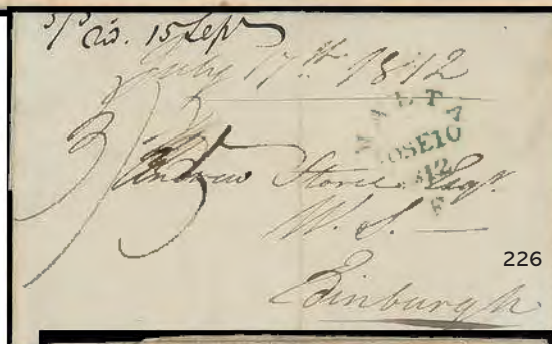 3/5 rd. 15 Sepr
July 17th 1812
MALTA
10SE10
812
3/5
Andrew Storie Esqr.
W. S.
226
Edinburgh